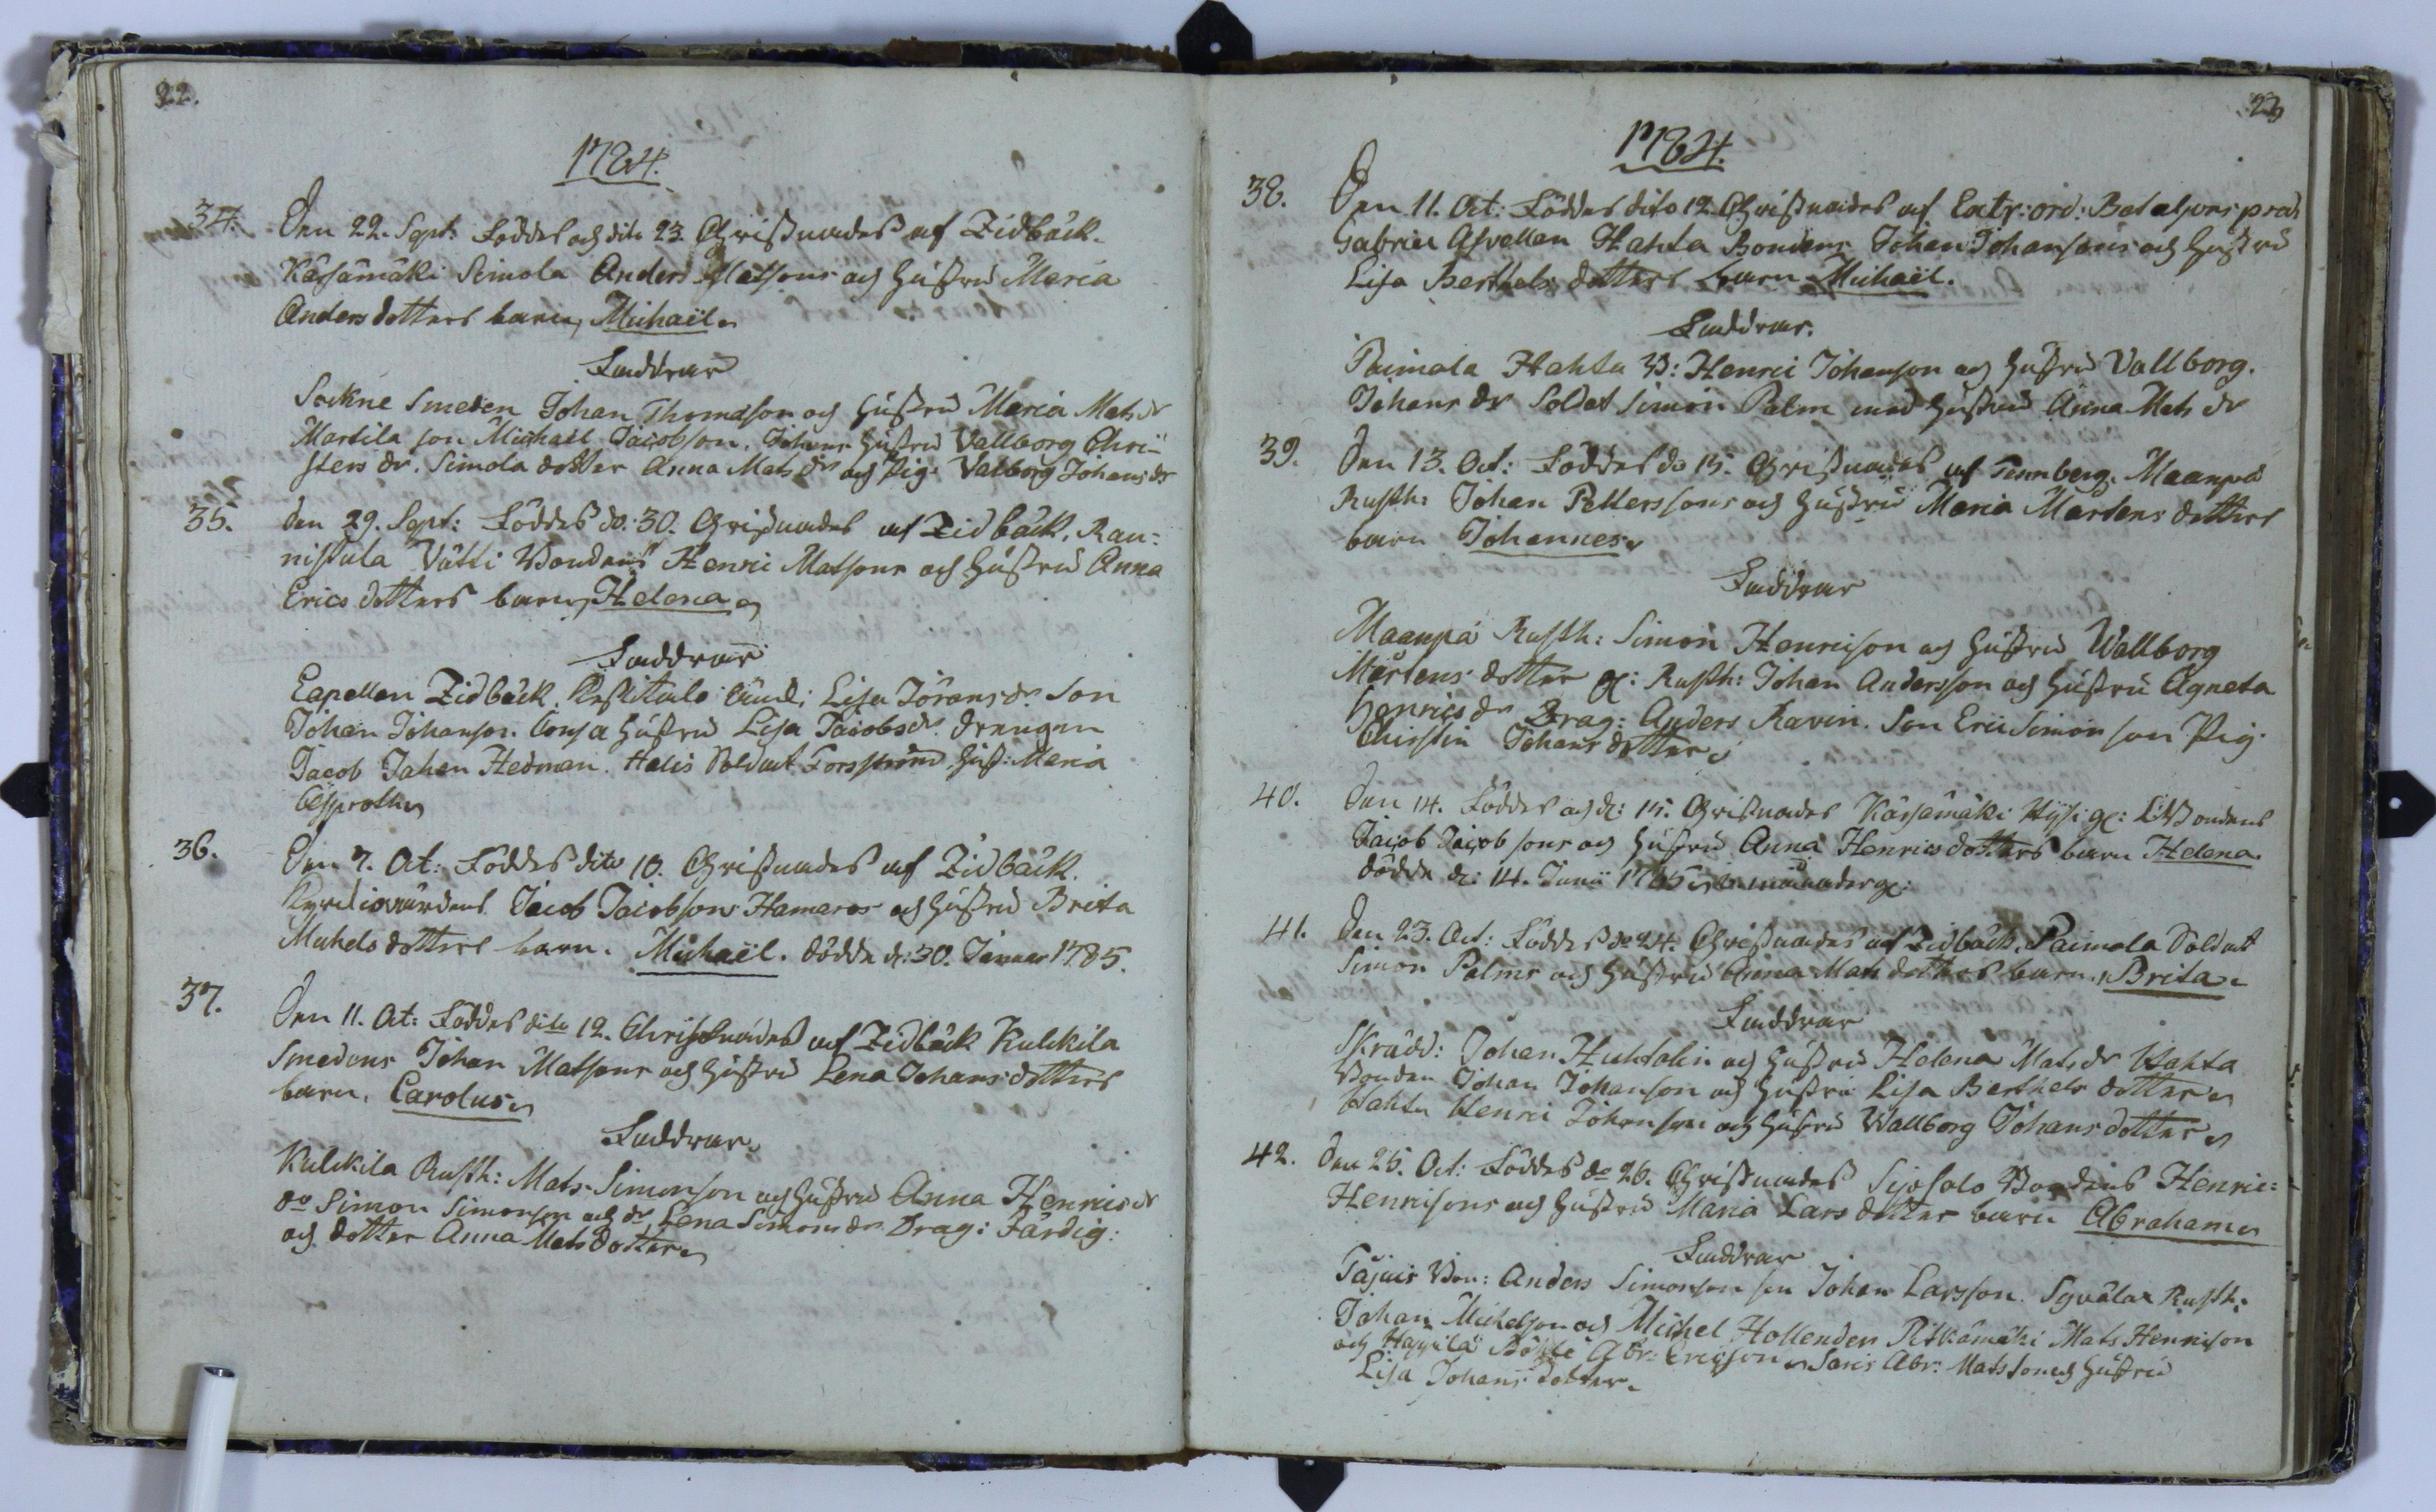 22.
1784.
34. Den 22. Sept: Föddes och dito 23 Christnades af Zidbäck.
Kärsämäki Simola Anders Matsons och hustru Maria
Anders dotters barn, Michaël
Faddrar
Sockne Smeden Johan Thomasson och hustru Maria Mats dr
Martila son Michaël Jacobson. Johans hustru Vallborg Chri-
sters dr. Simola dotter Anna Mats dr och Pig. Valborg Johans dr
35. den 29. Sept: Föddes do. 30. Christnades af Zidbäck. Rau-
nistula Vätti Bondens Henric Matsons och hustru Anna
Erics dotters barn, Helena
Faddrar
Capellan Zidbäck. Lisa Jörans dr. Son
Johan Johanson. hustru Lisa Jacobs dr. drengen
Jacob Johan Hedman. Halis Soldat Forsström hust: Maria
36. Den 7. Oct: Föddes dito 10. Christnades af Zidbäck.
Jacob Jacobsons Hamaros och hustru Brita
Michels dotters barn. Michaël. dödde d: 30. Januar 1785.
37. Den 11. Oct: Föddes dito 12. Christnades af Zidbäck Kulckila
Smedens Johan Matsons och hustru Lena Johans dotters
barn. Carolus
Faddrar
Kulckila Rusth: Mats Simonson och hustru Anna Henrics dr
do Simon Simonson och dr Lena Simons dr Drag: Färdig:
och dotter Anna Mats dotter
23
1784.
38. Den 11. Oct: Föddes dito 12 Christnades af Extr: ord: Bataljons pred
Gabriel Asvellan Hahta Bondens Johan Johansons och hustru
Lisa Berthels dotters barn Michaël.
Faddrar.
Paimala Hahta B: Henric Johanson och hustru Vallborg.
Johans dr Soldat Simon Palm med hustru Anna Mats dr
39. Den 13. Oct: Föddes do 15. Christnades af Tennberg. Maanpä
Rusth: Johan Pettersons och hustru Maria Mårtens dotters
barn Johannes
Faddrar
Maanpä Rusth: Simon Henricson och hustru Wallborg
Mårtens dotter gl: Rusth: Johan Andersson och hustru Agneta
Henrics dr Drag: Anders Ravin. Son Eric Simon son Pig.
Christin Johans dotter
40. Den 14. Föddes och d: 15. Christnades Kärsämäki Hysi gl: Bondens
Jacob Jacobsons och hustru Anna Henrics dotters barn Helena.
dödde d: 14. Junii 1785 månader gl:
41. Den 23. Oct: Föddes do 24. Christnades af Zidbäck. Paimala Soldat
Simon Palms och hustru Anna Mats dotters barn. Brita
Faddrar
Skrädd: Johan Huhtalin och hustru Helena Mats dr Hahta
Bonden Johan Johanson och hustru Lisa Berthels dotter
Hahta Henric Johanson och hustru Wallborg Johans dotter
42. Den 25. Oct: Föddes do 26. Christnades Sipsalo Bondens Henric
Henricsons och hustru Maria Lars dotters barn Abraham
Faddrar
Bon: Anders Simonson son Johan Larsson. Syvälax Rusth:
Johan Michelson och Michel Hollender Pitkämäki Mats Henricson
och Happila Abr: Ericson Saris Abr: Matsson och hustru
Lisa Johans dotter.